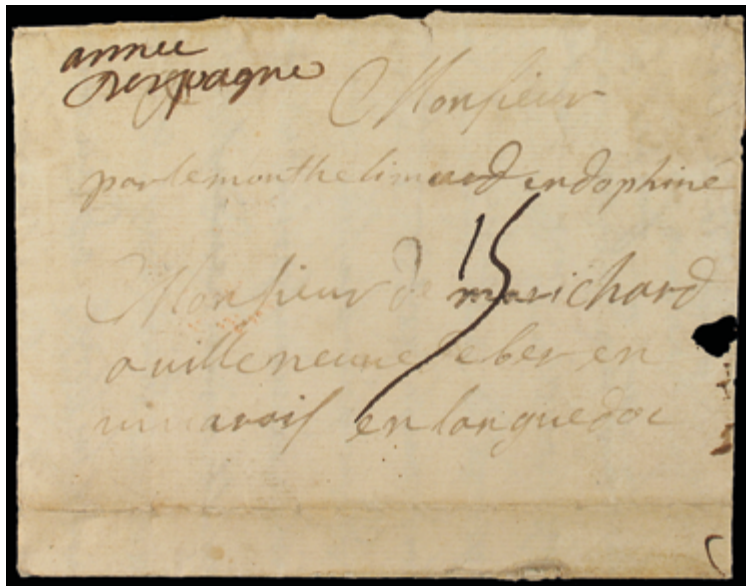 annee
despagne
Monsieur
par le monthelimard en dophiné
15
Monsieur de marichard
a villeneuve de ber en
vivarois en languedoc